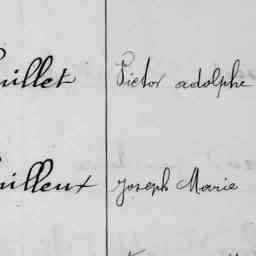 uillet Victor adolphe
uilleux Joseph Marie